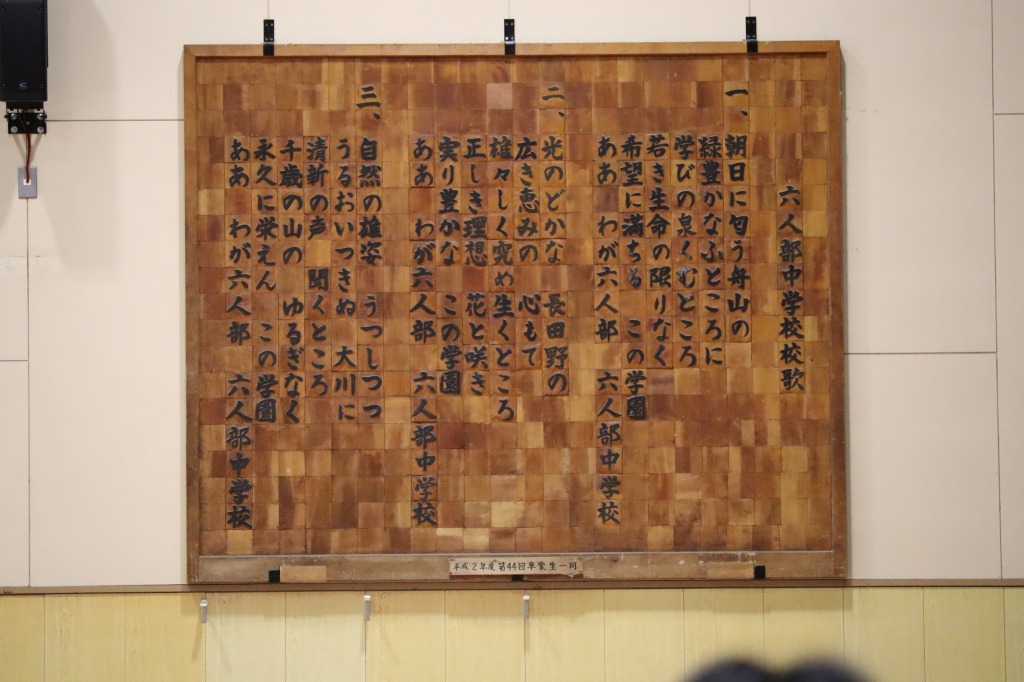 六人部中学校校歌
一、朝日に匂う舟山の
緑豊かなふところに
学びの泉くむところ
若き生命の限りなく
希望に満ちる この学園
ああ わが六人部 六人部中学校
二、光のどかな 長田野の
広き恵みの 心もて
雄々しく究め生くところ
正しき理想 花と咲き
実り豊かな この学園
ああ わが六人部 六人部中学校
三、自然の雄姿 うつしつつ
うるおいつきぬ 大川に
清新の声 聞くところ
千歳の山の ゆるぎなく
永久に栄えん この学園
ああ わが六人部 六人部中学校
平成2年度 第44回卒業生一同